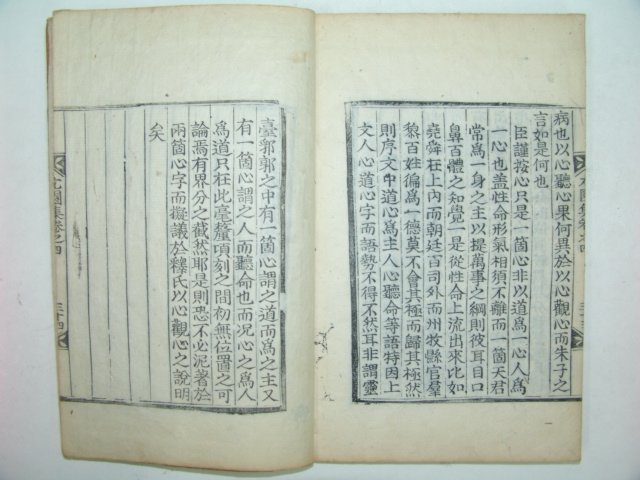 病也以心聽心果何異於以心觀心而朱子之
言如是何也
臣謹按心只是一箇心非以道爲一心人爲
一心也盖性命形氣相須不離而一箇天君
常爲一身之主以提萬事之綱則彼耳目口
鼻百體之知覺一是從性命上流出來比如
堯舜在上內而朝廷百司外而州牧縣官羣
黎百姓徧爲一德莫不會其極而歸其極然
則序文中道心爲主人心聽命等語特因上
文人心道心字而語勢不得不然耳非謂靈
臺郛郭之中有一箇心謂之道而爲之主又
有一箇心謂之人而聽命也而况心之爲人
爲道只在此毫釐頃刻之間初無位置之可
論焉有界分之截然耶是則恐不必泥著於
兩箇心字而擬議於釋氏以心觀心之說明
矣
集卷之四
三十四